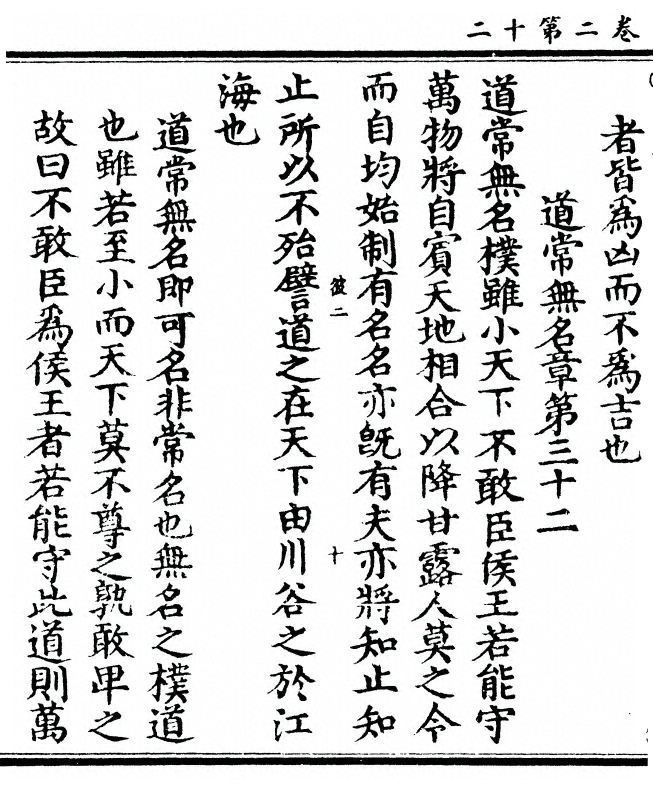 卷二第十二
者皆爲凶而不爲吉也
道常無名章第三十二
道常無名樸雖小天下不敢臣侯王若能守
萬物將自賓天地相合以降甘露人莫之令
而自均始制有名名亦旣有夫亦將知止知
彼二
十
止所以不殆譬道之在天下由川谷之於江
海也
道常無名即可名非常名也無名之樸道
也雖若至小而天下莫不尊之孰敢卑之
故曰不敢臣爲侯王者若能守此道則萬